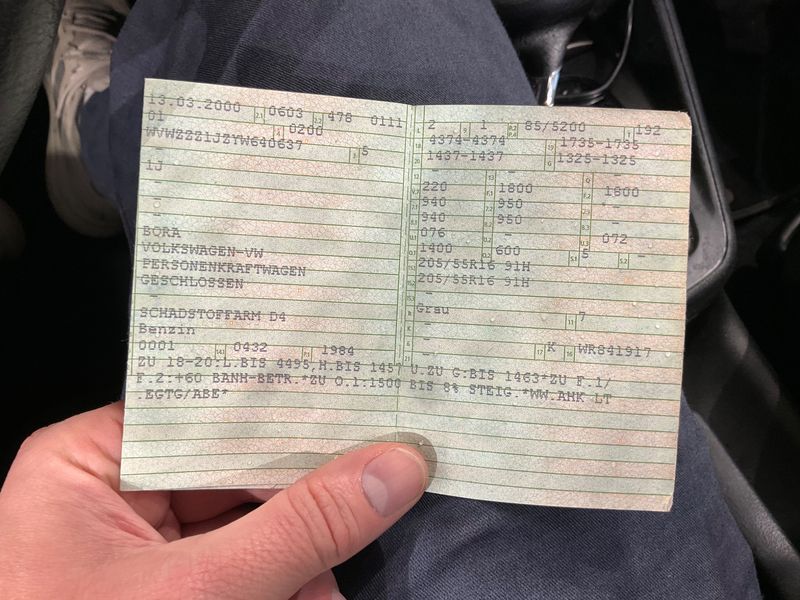 13.03.2000 0603 478 0111
01 0200
WVWZZZ1JZYW640637 5
-
1J
-
-
-
BORA
VOLKSWAGEN-VW
PERSONENKRAFTWAGEN
GESCHLOSSEN
-
SCHADSTOFFARM D4
Benzin
0001 0432 1984
2 1 85/5200 192
4374-4374 1735-1735
1437-1437 1325-1325
- - -
220 1800 1800
940 950 -
940 950 -
076 - 072
1400 600 5 -
205/55R16 91H
205/55R16 91H
-
Grau 7
-
- K WR841917
-
ZU 18-20:L.BIS 4495,H.BIS 1457 U.ZU G:BIS 1463*ZU F.1/
F.2:+60 BANH-BETR.*ZU O.1:1500 BIS 8% STEIG.*WW.AHK LT
.EGTG/ABE*